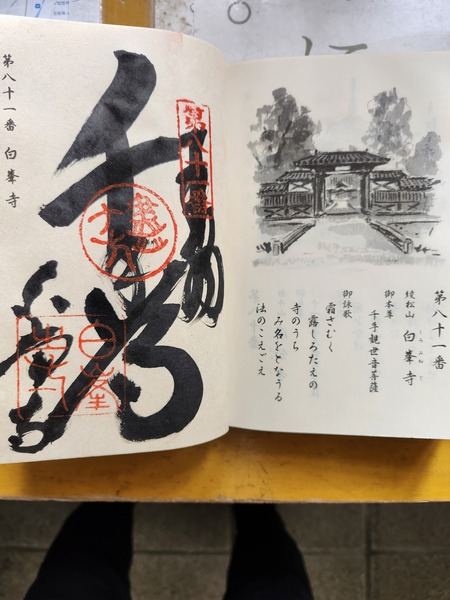 第八十一番
綾松山 白峯寺
しろみねじ
御本尊
千手観世音菩薩
御詠歌
霜さむく
露しろたえの
寺のうち
み名をとなうる
法のこえごえ
第八十一番
白峯寺
第八十一番 白峯寺